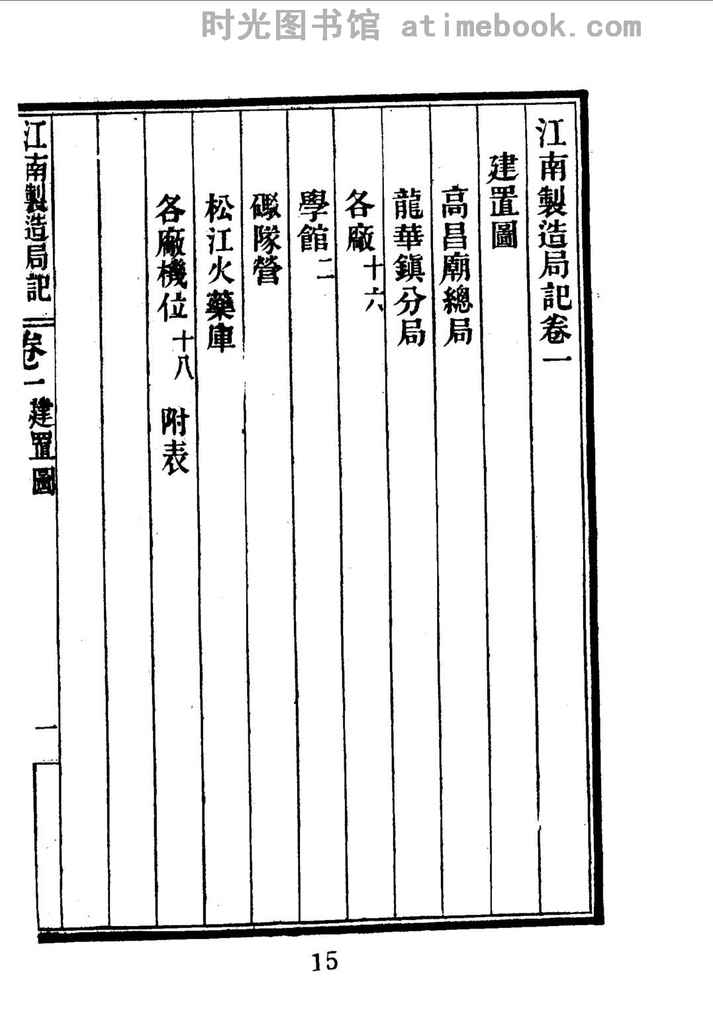 时光图书馆 atimebook.com
江南製造局記卷一
建置圖
高昌廟總局
龍華鎮分局
各廠十六
學館二
礮隊營
松江火藥庫
各廠機位十八 附表
江南製造局記 卷一 建置圖 一
15